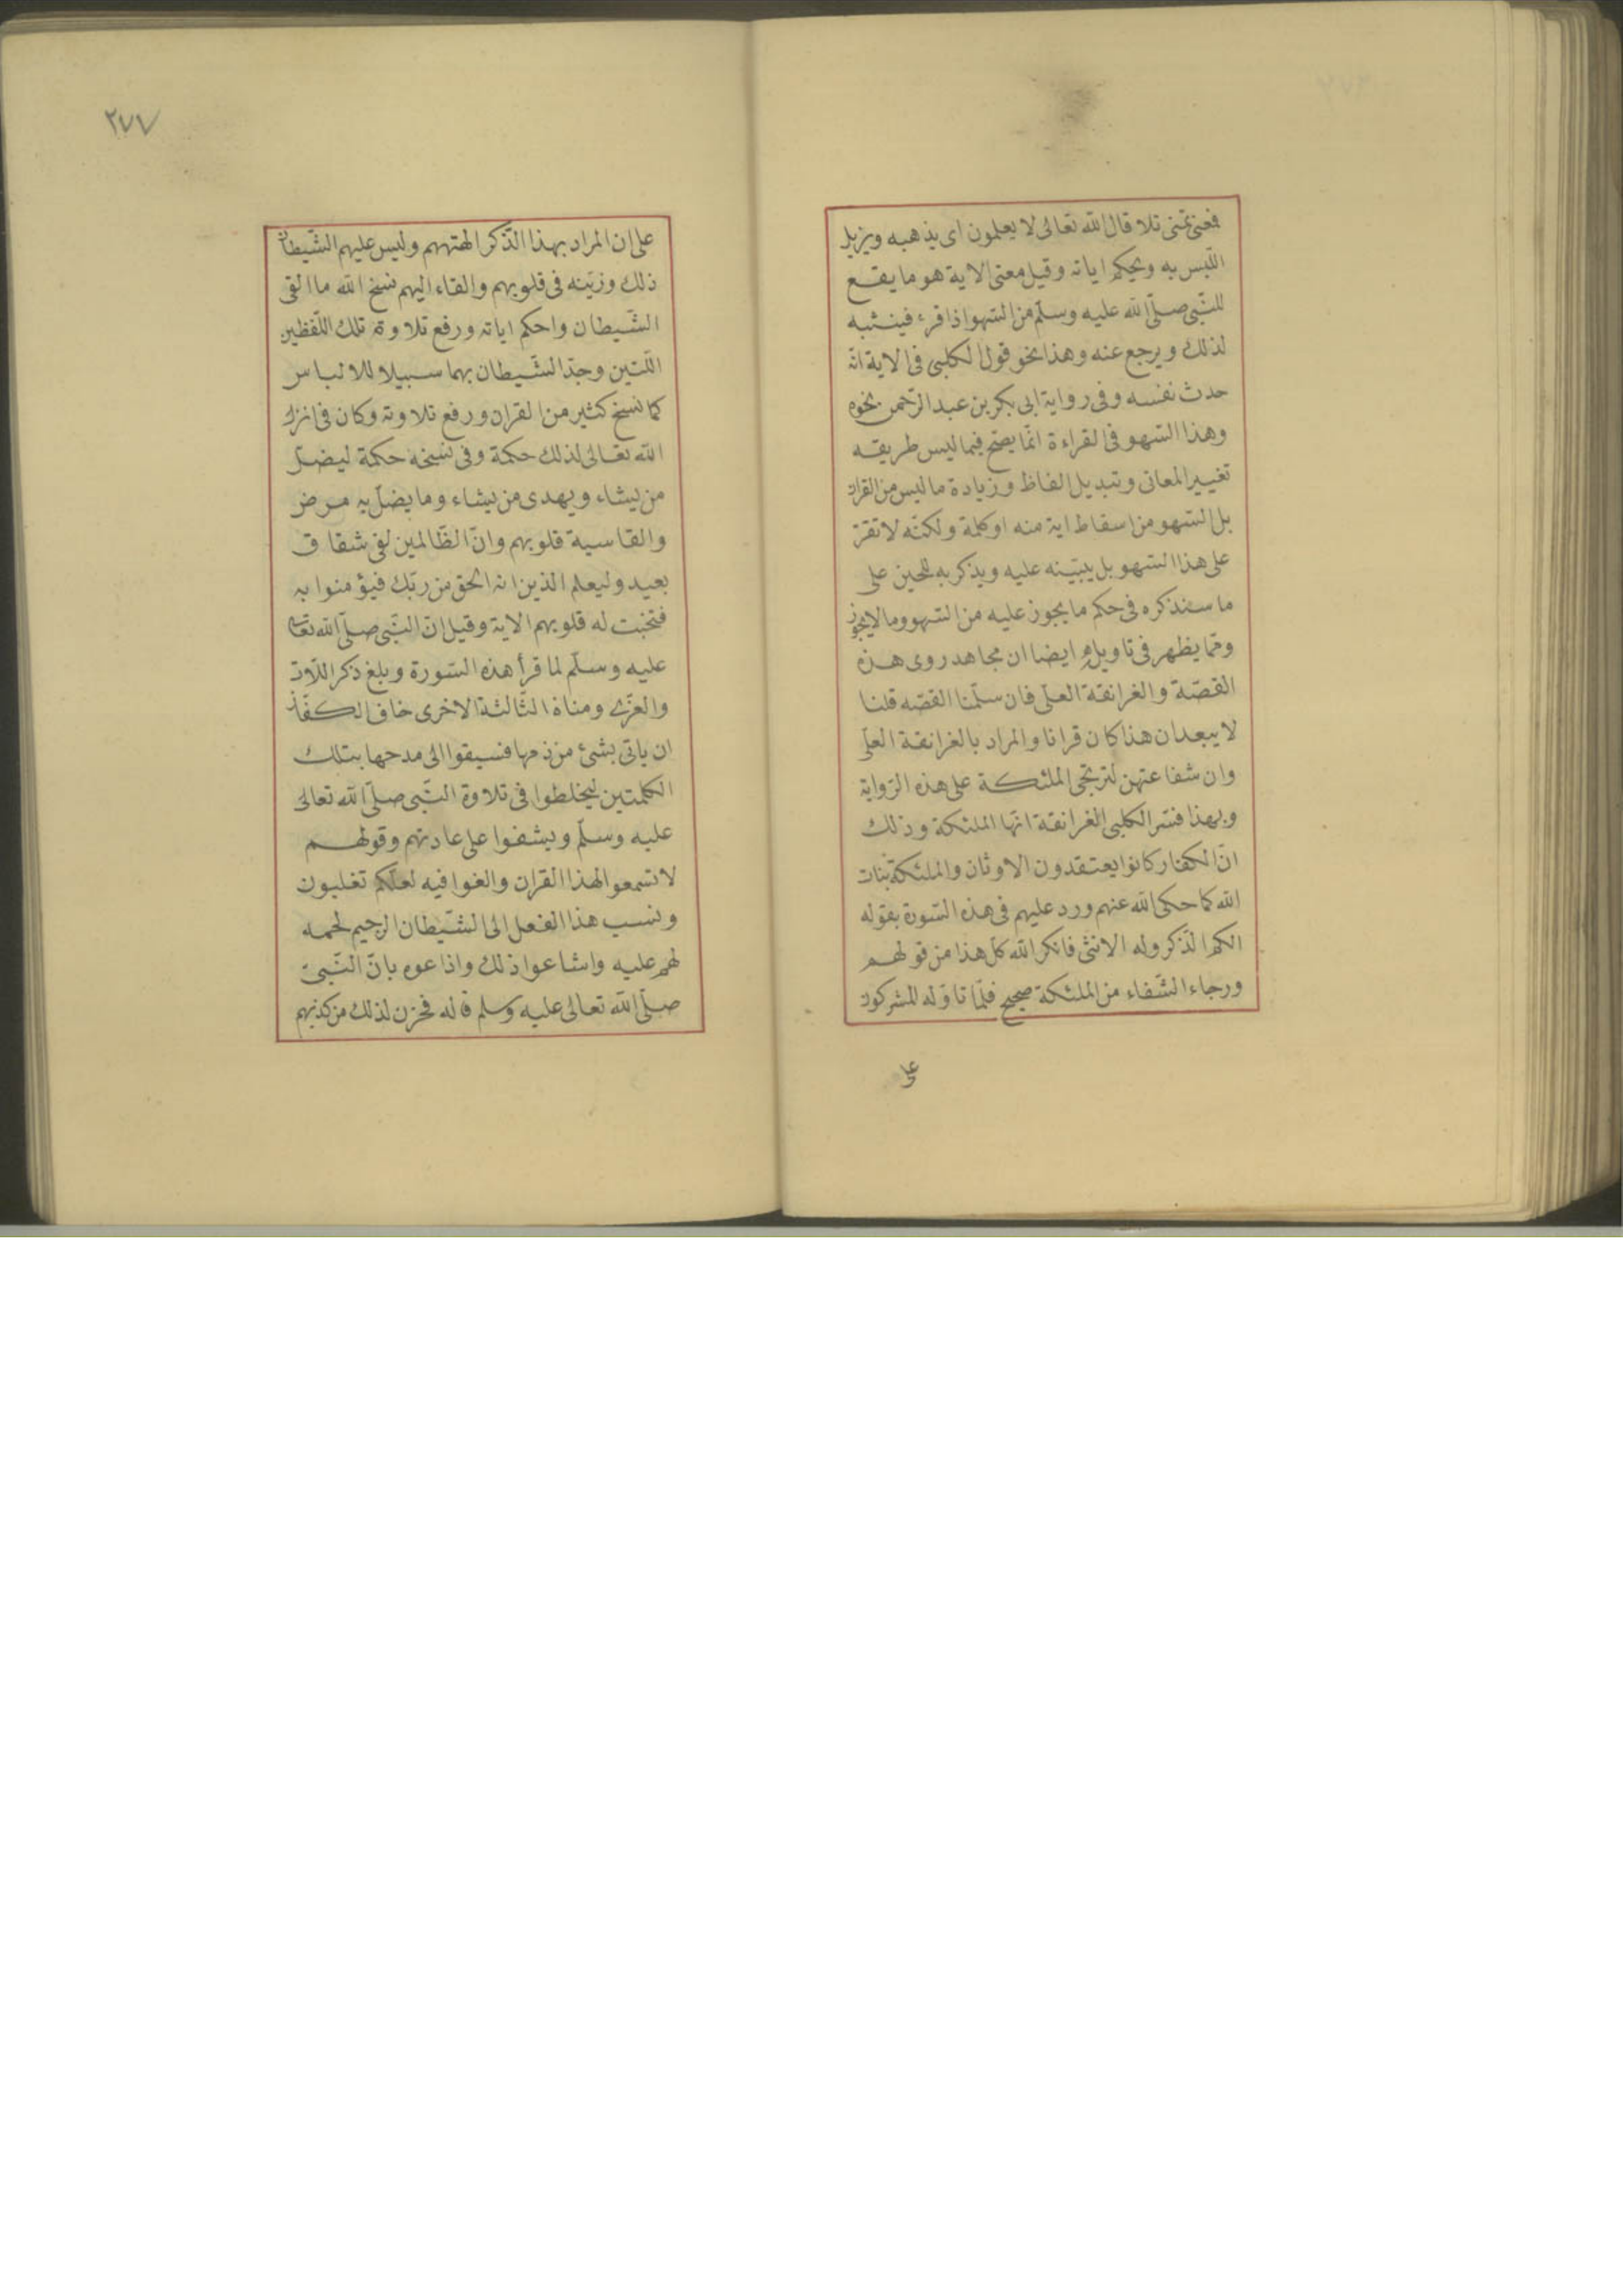 فمعنى تمنى تلا قال الله تعالى لا يعلمون اى يذهبه ويزيل
اللبس به ويحكم اياته وقيل معنى الاية هو ما يقع
للنبى صلى الله عليه وسلم من السهو اذا قرء فينتبه
لذلك ويرجع عنه وهذا نحو قول الكلبى فى الاية انه
حدث نفسه وفى رواية ابى بكر بن عبد الرحمن نحوه
وهذا السهو فى القراءة انما يصح فيما ليس طريقه
تغيير المعانى وتبديل الفاظ وزيادة ما ليس من القران
بل السهو من اسقاط اية منه او كلمة ولكنه لا تقر
على هذا السهو بل يبينه عليه ويذكر به للحين على
ما سنذكره فى حكم ما يجوز عليه من السهو وما لا يجوز
ومما يظهر فى تاويله ايضا ان مجاهد روى هذه
القصة والغرانقة العلى فان سلمنا القصه قلنا
لا يبعد ان هذا كان قرانا والمراد بالغرانقة العلى
وان شفاعتهن لترتجى الملئكة على هذه الرواية
وبهذا فسر الكلبى الغرانقة انها الملئكة وذلك
ان الكفار كانوا يعتقدون الاوثان والملئكة بنات
الله كما حكى الله عنهم ورد عليهم فى هذه السورة بقوله
الكم الذكر وله الانثى فانكر الله كل هذا من قولهم
ورجاء الشفاء من الملئكة صحيح فلما تاوله المشركون
على
٢٧٧
على ان المراد بهذا الذكر الهتهم ولبس عليهم الشيطان
ذلك وزينه فى قلوبهم والقاء اليهم نسخ الله ما القى
الشيطان واحكم اياته ورفع تلاوة تلك اللفظين
اللتين وجد الشيطان بهما سبيلا للالباس
كما نسخ كثير من القران ورفع تلاوته وكان فى انزال
الله تعالى لذلك حكمة وفى نسخه حكمة ليضل
من يشاء ويهدى من يشاء وما يضل به مرض
والقاسية قلوبهم وان الظالمين لفى شقاق
بعيد وليعلم الذين انه الحق من ربك فيؤمنوا به
فتخبت له قلوبهم الاية وقيل ان النبى صلى الله تعالى
عليه وسلم لما قرأ هذه السورة وبلغ ذكر اللات
والعزى ومناة الثالثة الاخرى خاف الكفار
ان ياتى بشئ من ذمها فسبقوا الى مدحها بتلك
الكلمتين ليخلطوا فى تلاوة النبى صلى الله تعالى
عليه وسلم ويشغوا على عادتهم وقولهم
لا تسمعوا لهذا القران والغوا فيه لعلكم تغلبون
ونسب هذا الفعل الى الشيطان الرجيم لحمله
لهم عليه واشاعوا ذلك واذاعوه بان النبى
صلى الله تعالى عليه وسلم قاله فحزن لذلك من كذبهم